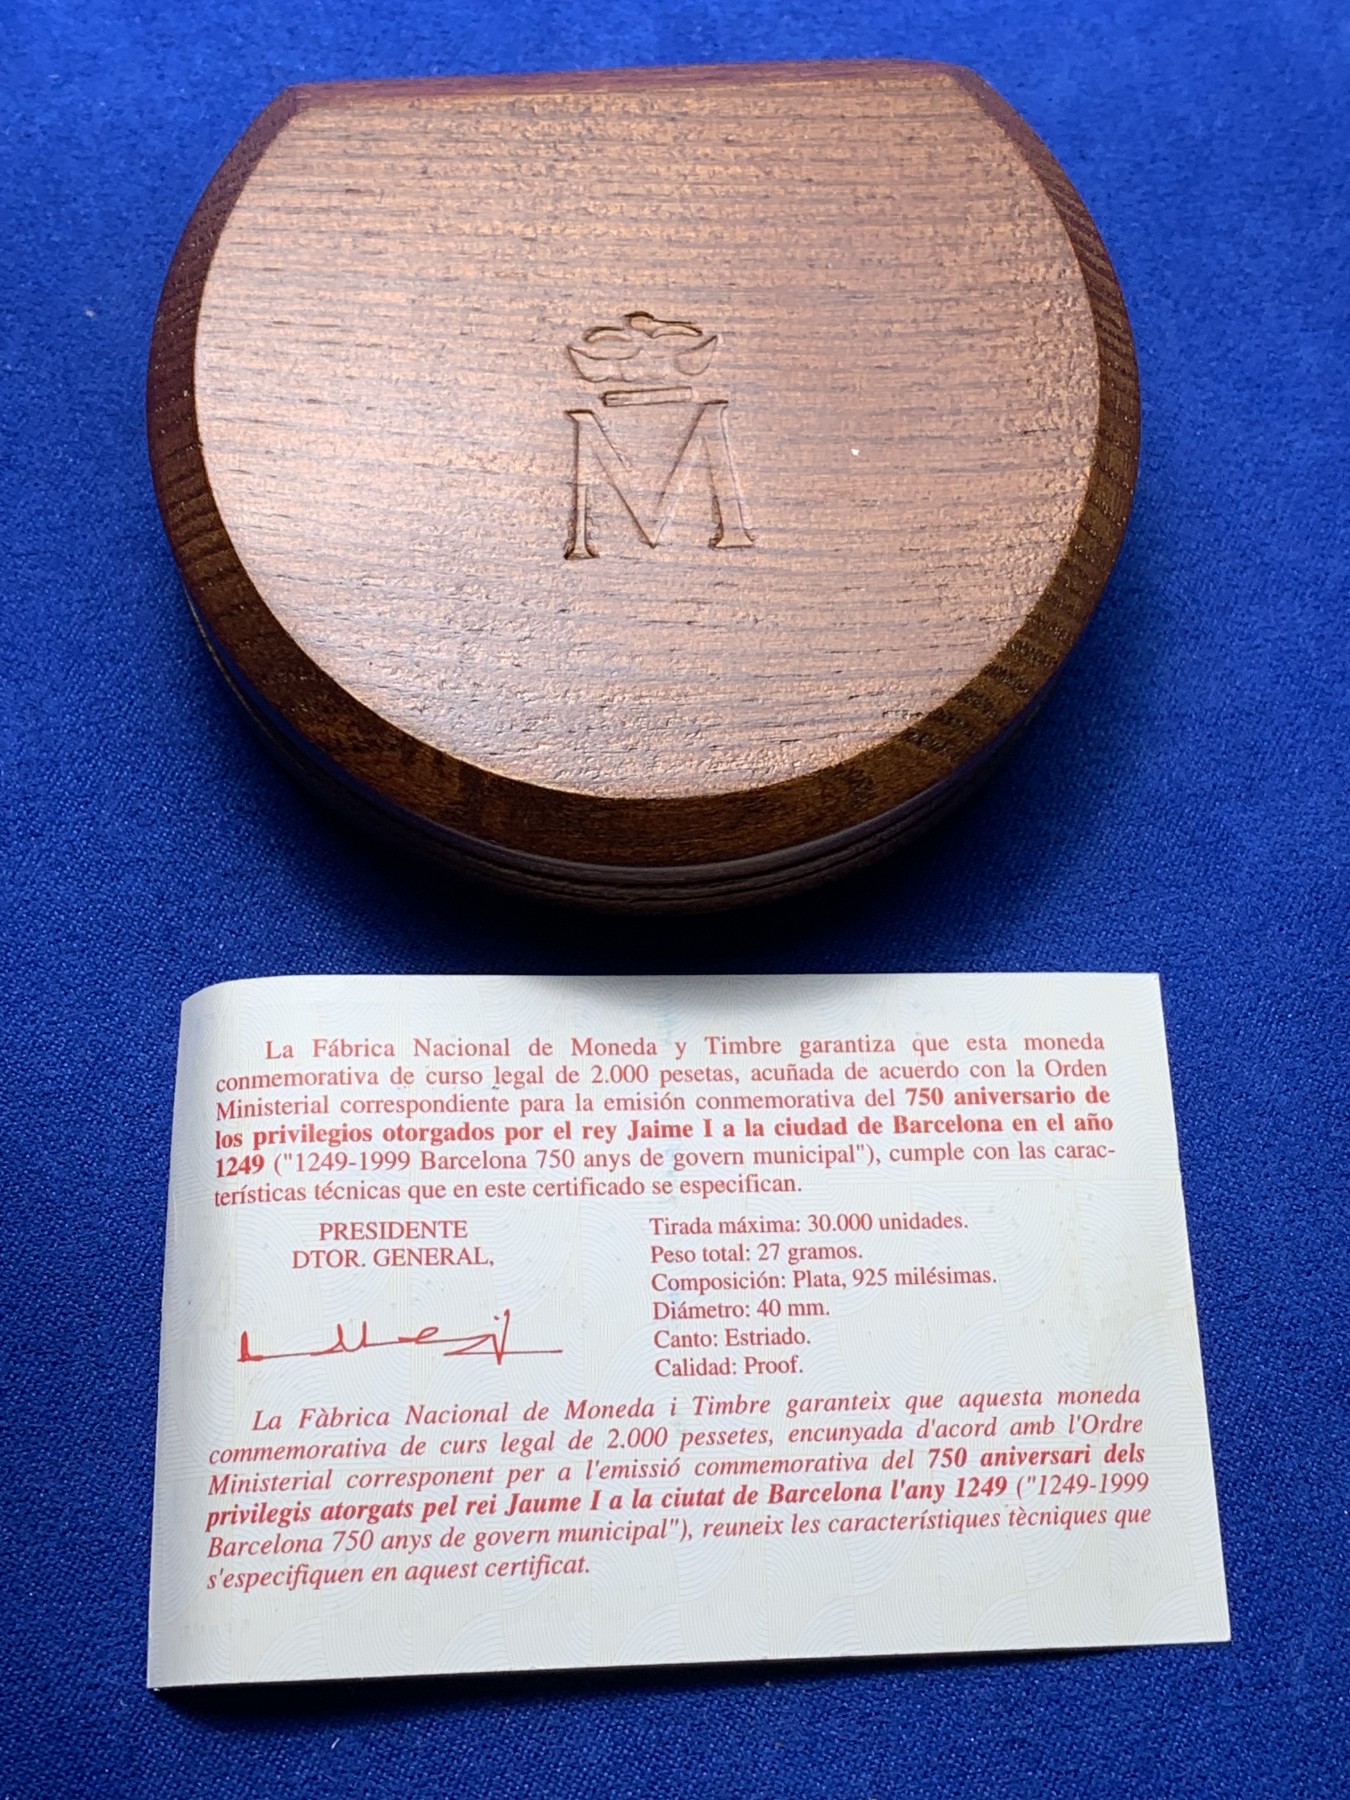 M
La Fábrica Nacional de Moneda y Timbre garantiza que esta moneda
conmemorativa de curso legal de 2.000 pesetas, acuñada de acuerdo con la Orden
Ministerial correspondiente para la emisión conmemorativa del 750 aniversario de
los privilegios otorgados por el rey Jaime I a la ciudad de Barcelona en el año
1249 ("1249-1999 Barcelona 750 anys de govern municipal"), cumple con las carac-
terísticas técnicas que en este certificado se especifican.
PRESIDENTE
DTOR. GENERAL,
Tirada máxima: 30.000 unidades.
Peso total: 27 gramos.
Composición: Plata, 925 milésimas.
Diámetro: 40 mm.
Canto: Estriado.
Calidad: Proof.
La Fàbrica Nacional de Moneda i Timbre garanteix que aquesta moneda
commemorativa de curs legal de 2.000 pessetes, encunyada d'acord amb l'Ordre
Ministerial corresponent per a l'emissió commemorativa del 750 aniversari dels
privilegis atorgats pel rei Jaume I a la ciutat de Barcelona l'any 1249 ("1249-1999
Barcelona 750 anys de govern municipal"), reuneix les característiques tècniques que
s'especifiquen en aquest certificat.